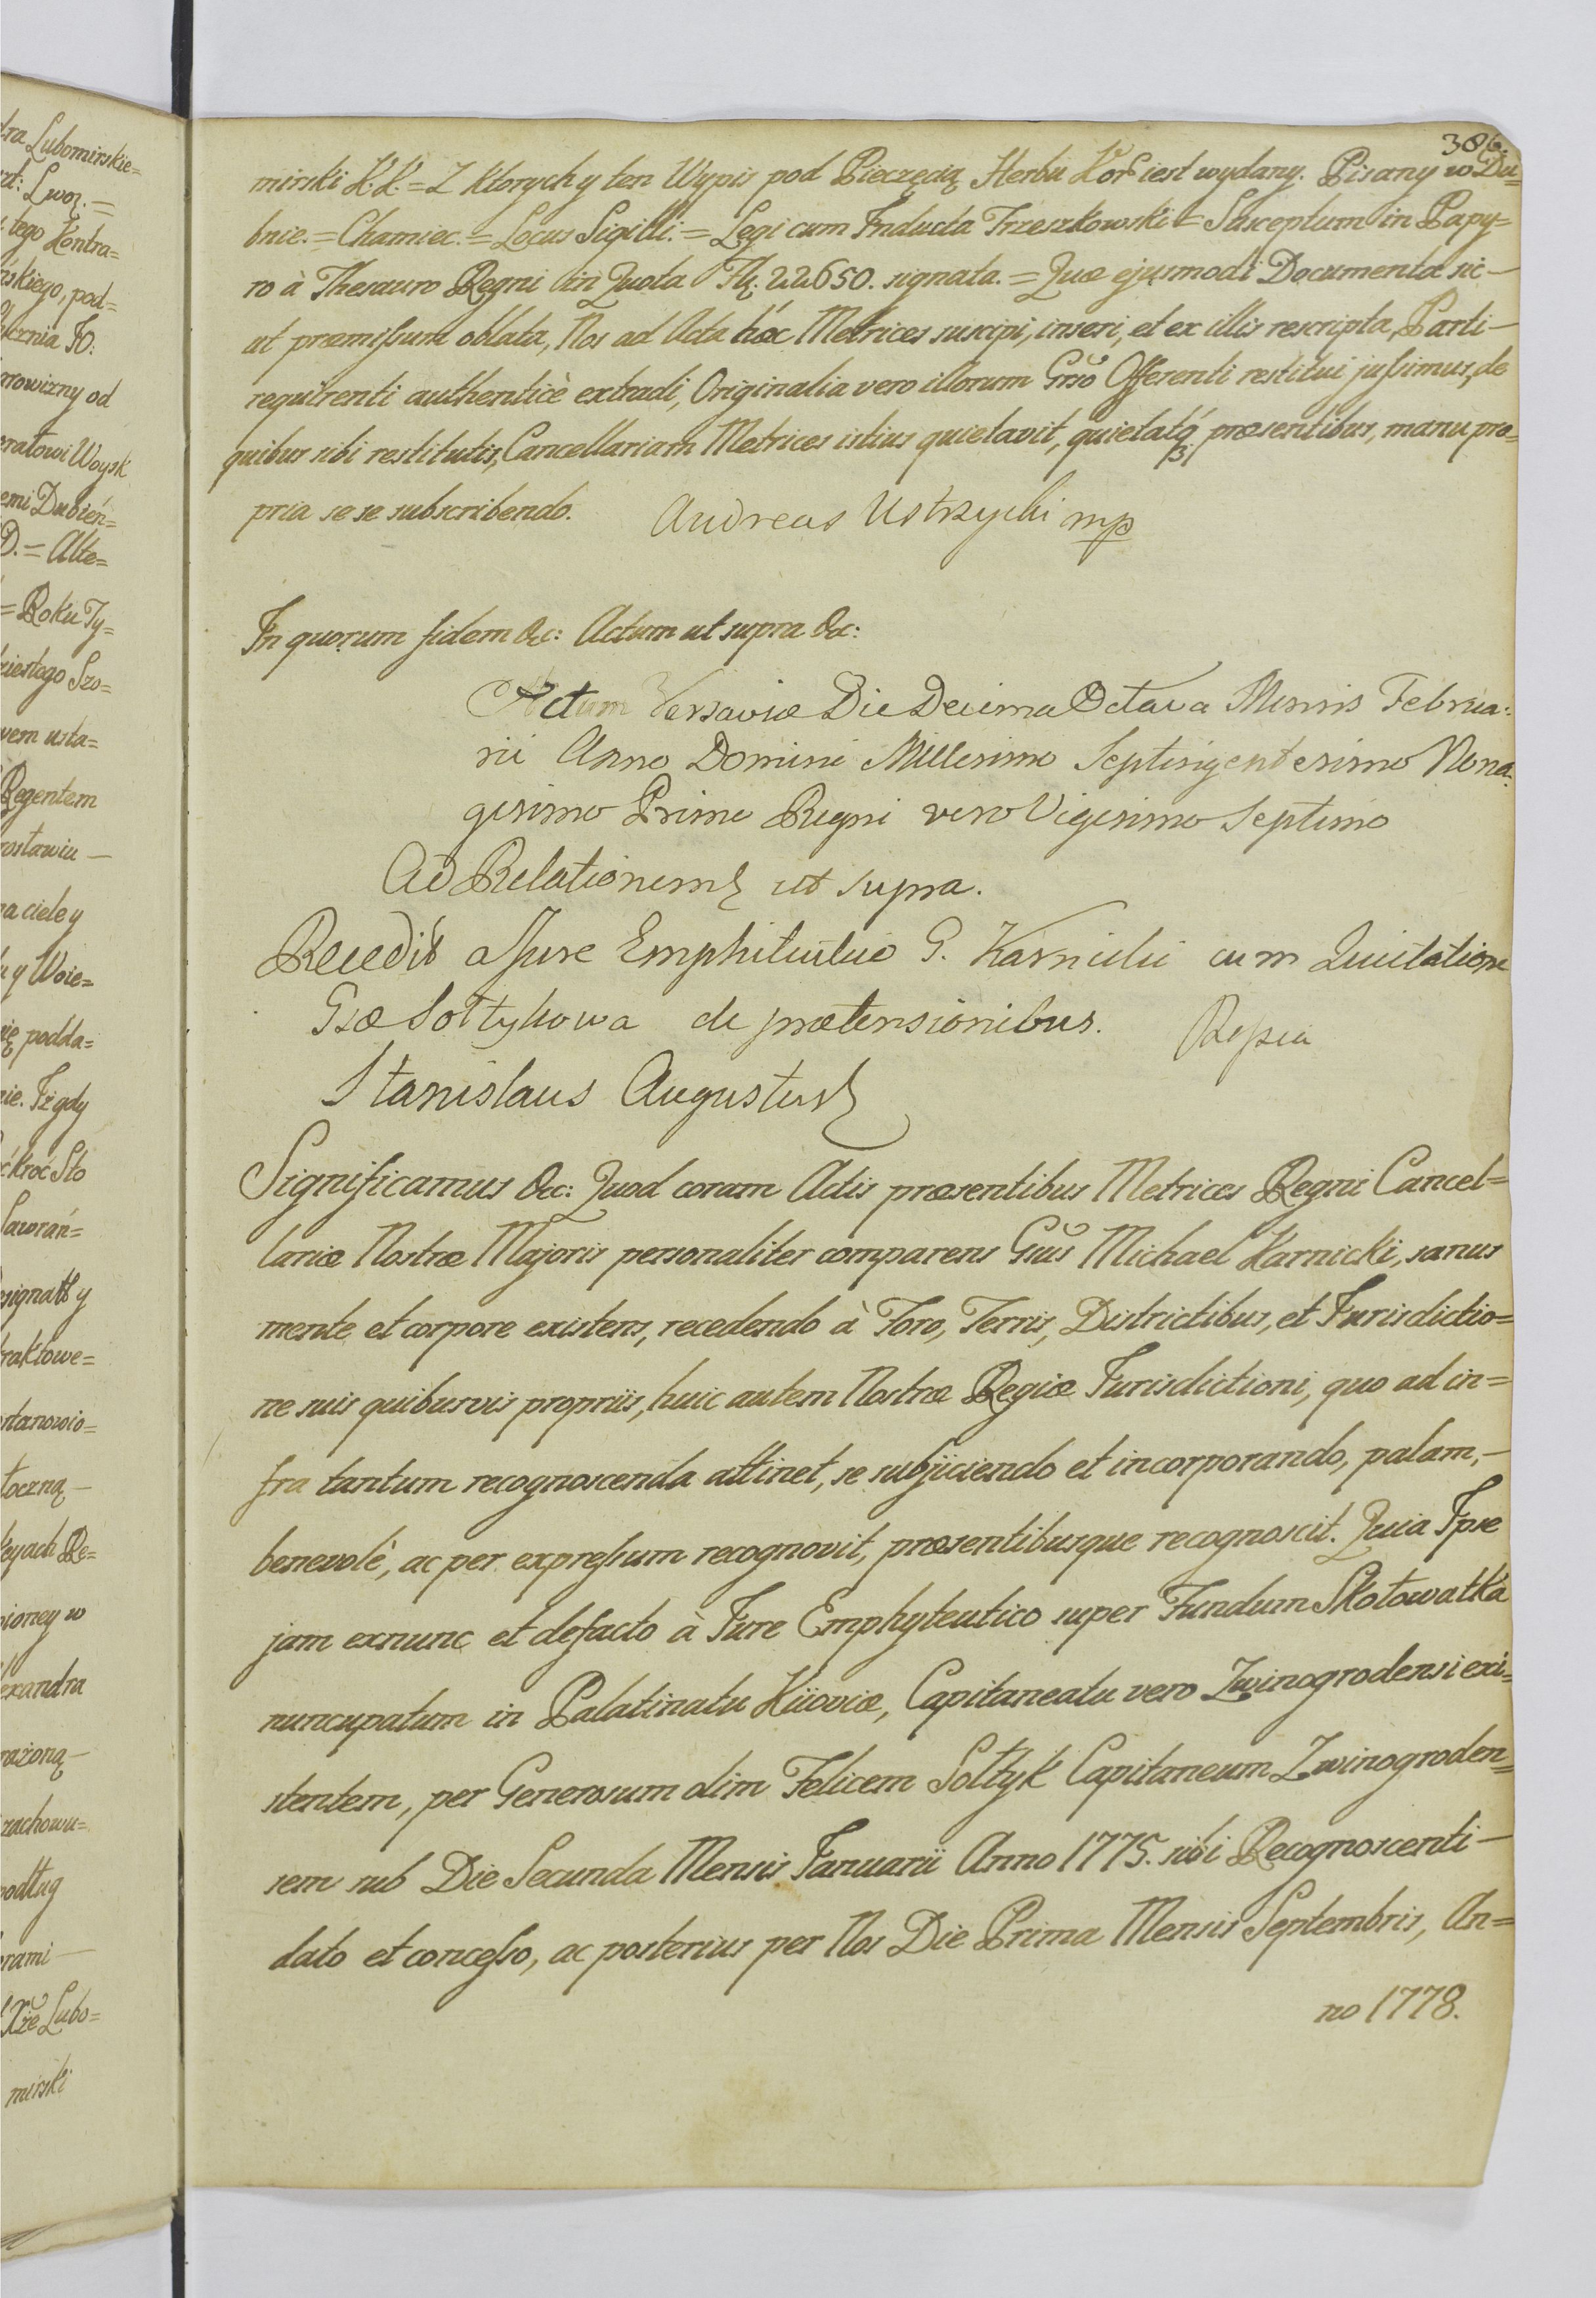 dra Lubomirskie=
Lwoꝛ. =
tego Kontra=
skiego, pod=
rowizny od
eratowi Woysk
emi Dubień=
D. = Akte=
= Roku Ty=
Szo=
wem usta=
Regentem
rostawiu —
ciele y
y Woie=
podda=
nie. Iż gdy
kroć Sto
Sawrań=
raktowe=
stanowio=
toczną —
Re=
ioney w
exandra
rażoną —
zachowu=
podług
Xże Lubo=
mirski
386.
mirski K. K. = Z ktorych y ten Wypis pod Pieczęcią Herbu Kor iest wydany. Pisany w Du=
bnie. = Chamiec. = Locus Sigilli. = Legi cum Inducta Trzeszkowski = Susceptum in Papy=
ro à Thesauro Regni in Quota Fłꝛ. 22650. signata. = Quæ ejusmodi Documenta sic —
ut præmissum oblata, Nos ad Acta hæc Metrices suscipi, inseri, et ex illis rescripta, Parti —
requirenti authenticè extradi, Originalia vero illorum Grso Offerenti restitui jussimus, de
quibus sibi restitutis, Cancellariam Metrices istius quietavit, quietatq́ præsentibus, manu pro=
pria se se subscribendo. Andreas Ustrzycki mp
In quorum fidem &c: Actum ut supra &c:
Actum Varsaviæ Die Decima Octava Mensis Februa:
rii Anno Domini Millesimo Septingentesimo Nona:
gesimo Primo Regni vero Vigesimo Septimo
Ad Relationem ut supra.
Recedit a Jure Emphiteutico G. Karnicki cum Quietatione
Gsæ Sołtykowa de prætensionibus.
Stanislaus Augustus
Significamus &c: Quod coram Actis præsentibus Metrices Regni Cancel=
lariæ Nostræ Majoris personaliter comparens Gsus Michael Karnicki, sanus
mente et corpore existens, recedendo à Foro, Terris, Districtibus, et Jurisdictio=
ne suis quibusvis propriis, huic autem Nostræ Regiæ Jurisdictioni, quo ad in=
fra tantum recognoscenda attinet, se subjiciendo et incorporando, palam, —
benevolè, ac per expressum recognovit, præsentibusque recognoscit. Quia Ipse
jam exnunc et defacto à Jure Emphyteutico super Fundum Skotowatka
nuncupatum in Palatinatu Kiioviæ, Capitaneatu vero Zwinogrodensi exi=
stentem, per Generosum olim Felicem Sołtyk Capitaneum Zwinogroden=
sem sub Die Secunda Mensis Januarii Anno 1775. sibi Recognoscenti —
dato et concesso, ac posterius per Nos Die Prima Mensis Septembris, An=
no 1778.